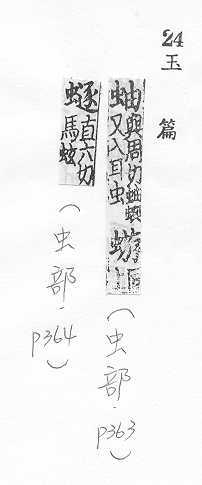 24 玉 篇
蚰 與周切蚰蜒
又入耳虫
（虫部.p363）
直六切
馬蚿
（虫部.p364）